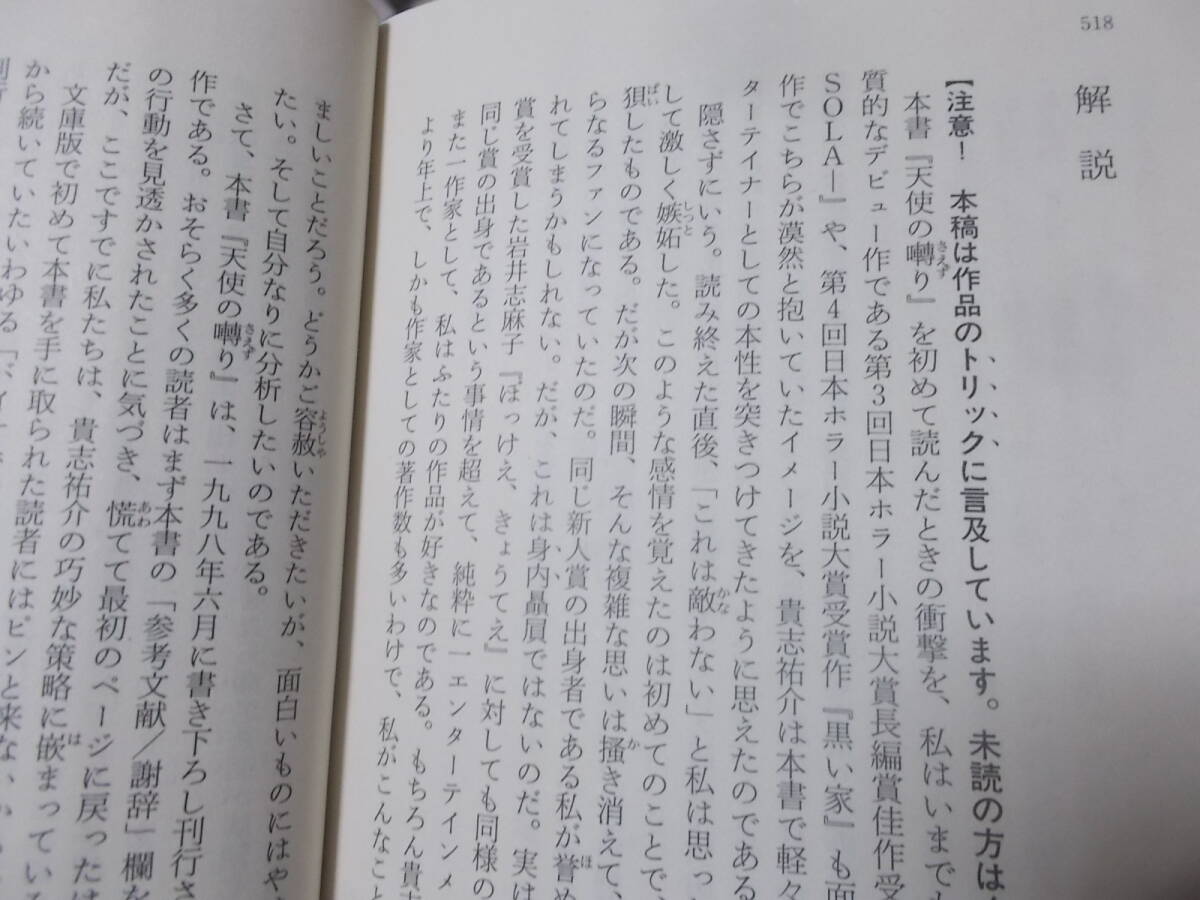 518
解説
【注意！　本稿は作品のトリックに言及しています。未読の方は
本書『天使の囀り』を初めて読んだときの衝撃を、私はいまでも
質的なデビュー作である第3回日本ホラー小説大賞長編賞佳作受
SOLA―』や、第4回日本ホラー小説大賞受賞作『黒い家』も面
作でこちらが漠然と抱いていたイメージを、貴志祐介は本書で軽々
ターテイナーとしての本性を突きつけてきたように思えたのである
隠さずにいう。読み終えた直後、「これは敵わない」と私は思っ
して激しく嫉妬した。このような感情を覚えたのは初めてのことで、
狽したものである。だが次の瞬間、そんな複雑な思いは掻き消えて、
らなるファンになっていたのだ。同じ新人賞の出身者である私が誉め
れてしまうかもしれない。だが、これは身内贔屓ではないのだ。実は
賞を受賞した岩井志麻子『ぼっけえ、きょうてえ』に対しても同様の
同じ賞の出身であるという事情を超えて、純粋に一エンターテインメ
また一作家として、私はふたりの作品が好きなのである。もちろん貴志
より年上で、しかも作家としての著作数も多いわけで、私がこんなこと
ましいことだろう。どうかご容赦いただきたいが、面白いものにはや
たい。そして自分なりに分析したいのである。
さて、本書『天使の囀り』は、一九九八年六月に書き下ろし刊行さ
作である。おそらく多くの読者はまず本書の「参考文献／謝辞」欄を
の行動を見透かされたことに気づき、慌てて最初のページに戻ったは
だが、ここですでに私たちは、貴志祐介の巧妙な策略に嵌まっている
文庫版で初めて本書を手に取られた読者にはピンと来ないか
から続いていたいわゆる「バイ